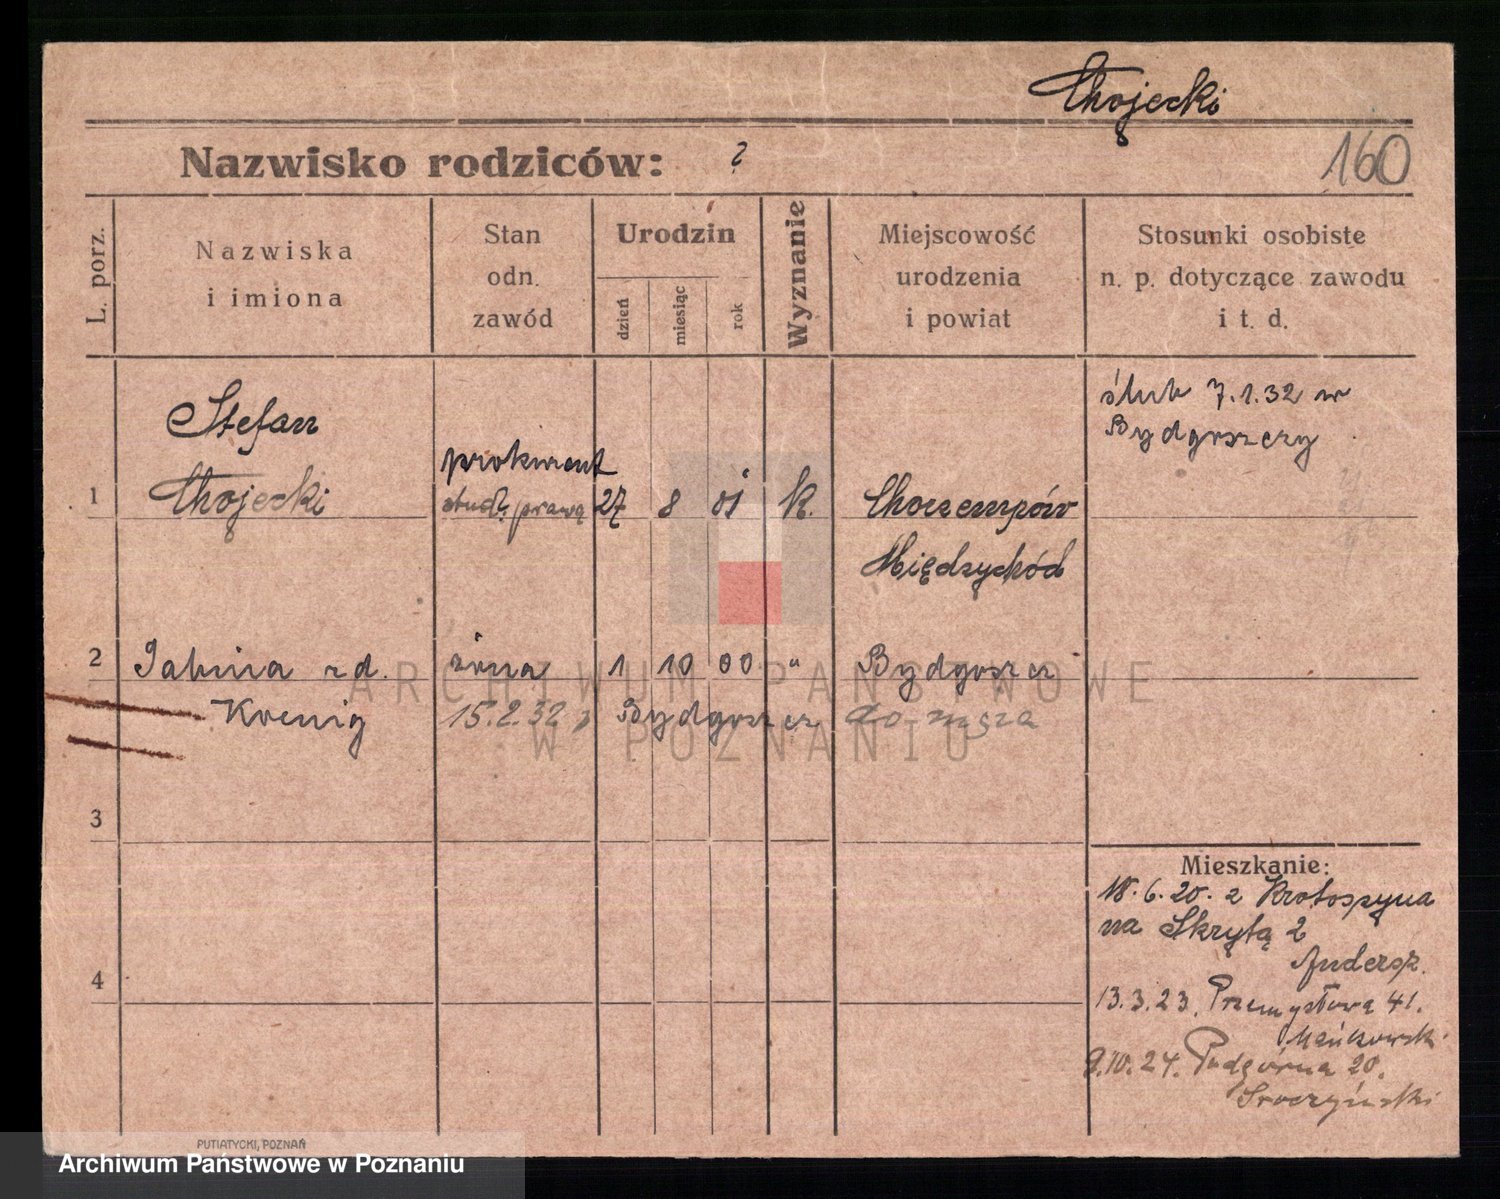 Chojecki
160
Nazwisko rodziców: ?
L. porz.
Nazwiska
i imiona
Stan
odn.
zawód
Urodzin
dzień
miesiąc
rok
Wyznanie
Miejscowość
urodzenia
i powiat
Stosunki osobiste
n. p. dotyczące zawodu
i t. d.
ślub 7.1.32 w
Bydgoszczy
Stefan
prokurent
1 Chojecki stud. prawa 27 8 01 K. Choczempów
Międzychód
2 żona 1 10 00 " Bydgoszcz
Koenig 15.2.32 z Bydgoszcz do męża
3
Mieszkanie:
18.6.20. z Krotoszyna
na Skrytą 2
Andersz.
4
13.3.23. Przemysłowa 41.
Mańkowski
9.10.24. Podgórna 20.
Sroczyński
ARCHIWUM PAŃSTWOWE
W POZNANIU
PUTIATYCKI, POZNAŃ
Archiwum Państwowe w Poznaniu